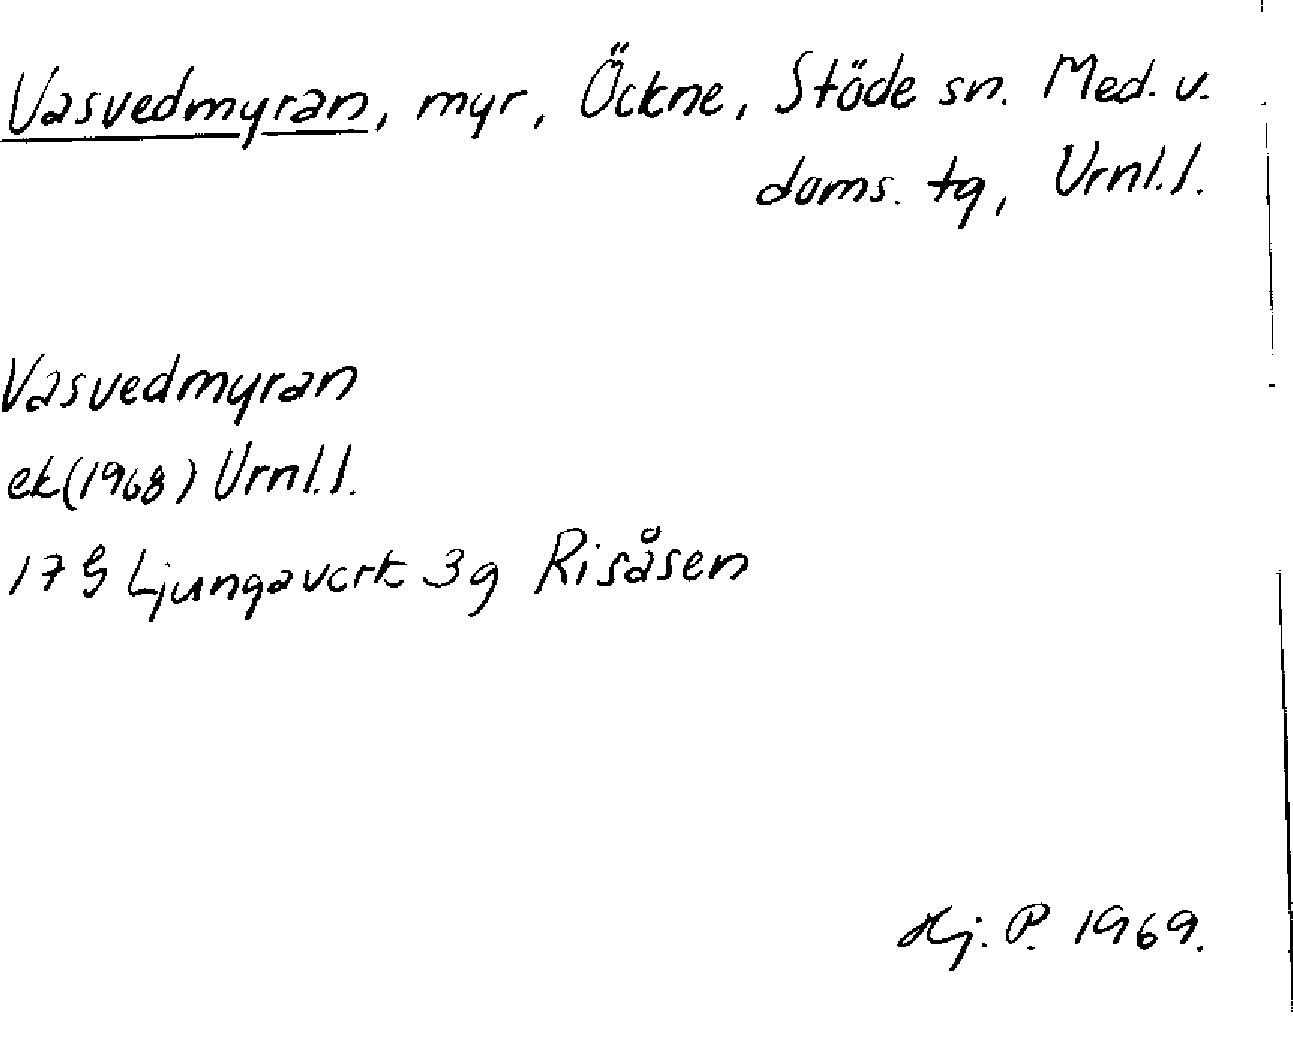 Vasvedmyran, myr, Öckne, Stöde sn. Med. v.
doms. tg, Vrnl.l.
Vasvedmyran
ek(1968) Vrnl.l.
17 G Ljungaverk 3g Risåsen
Hj. P. 1969.